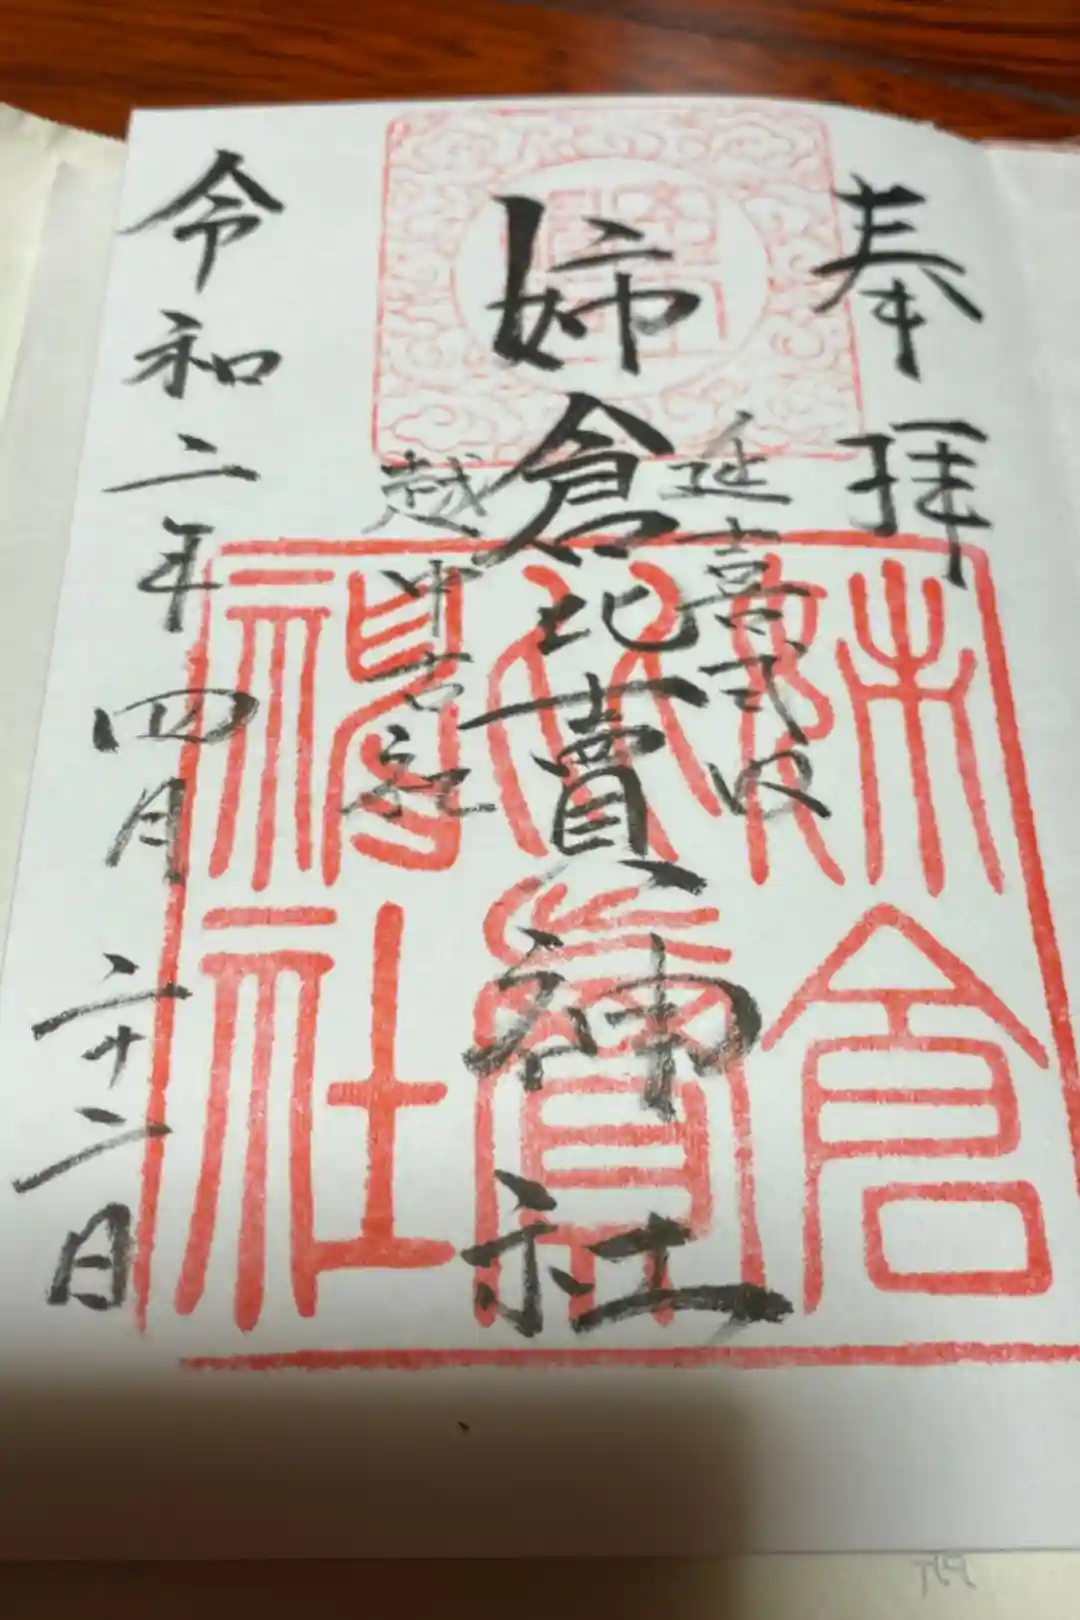 奉拝
延喜式内
姉倉比賣神社
越中古社
令和二年四月二十二日
姉倉比賣神社